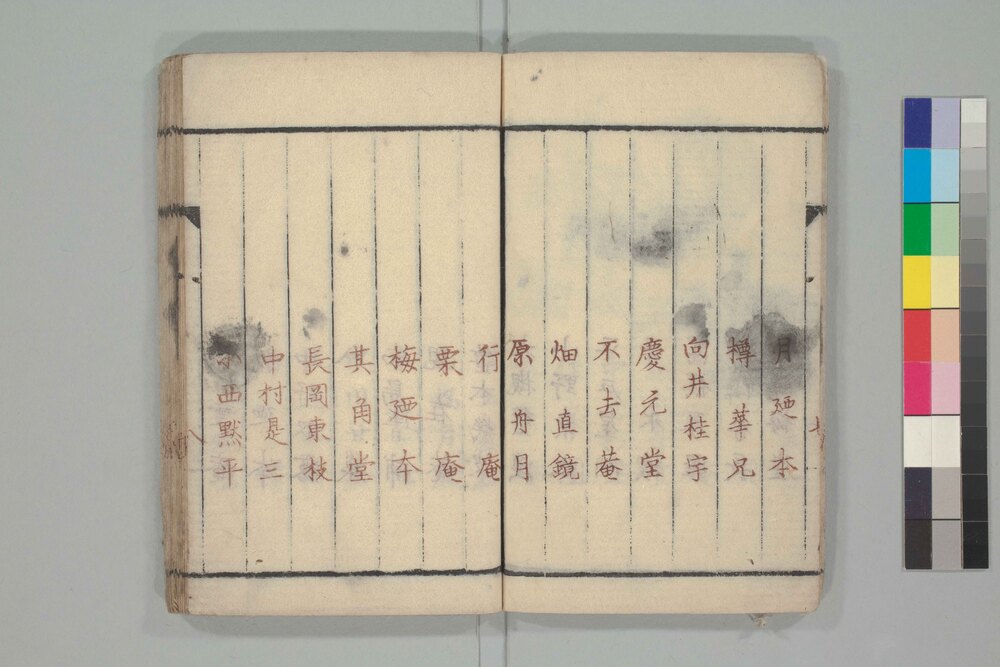 月廼本
樽華兄
向井桂宇
慶元堂
不去菴
畑直鏡
原舟月
行庵
栗庵
梅廼本
其角堂
長岡東枝
中村是三
小西黙平
八